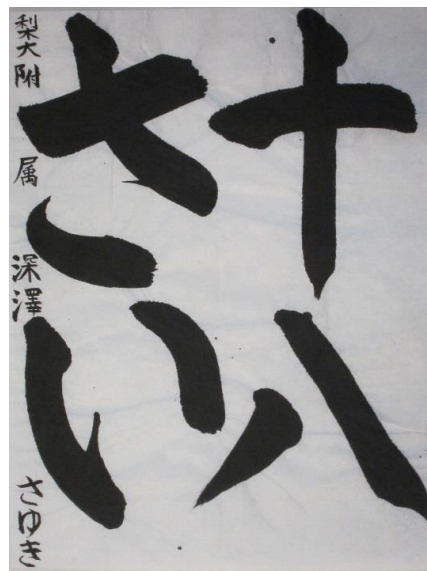 十八
さい
梨大附属 深澤 さゆき